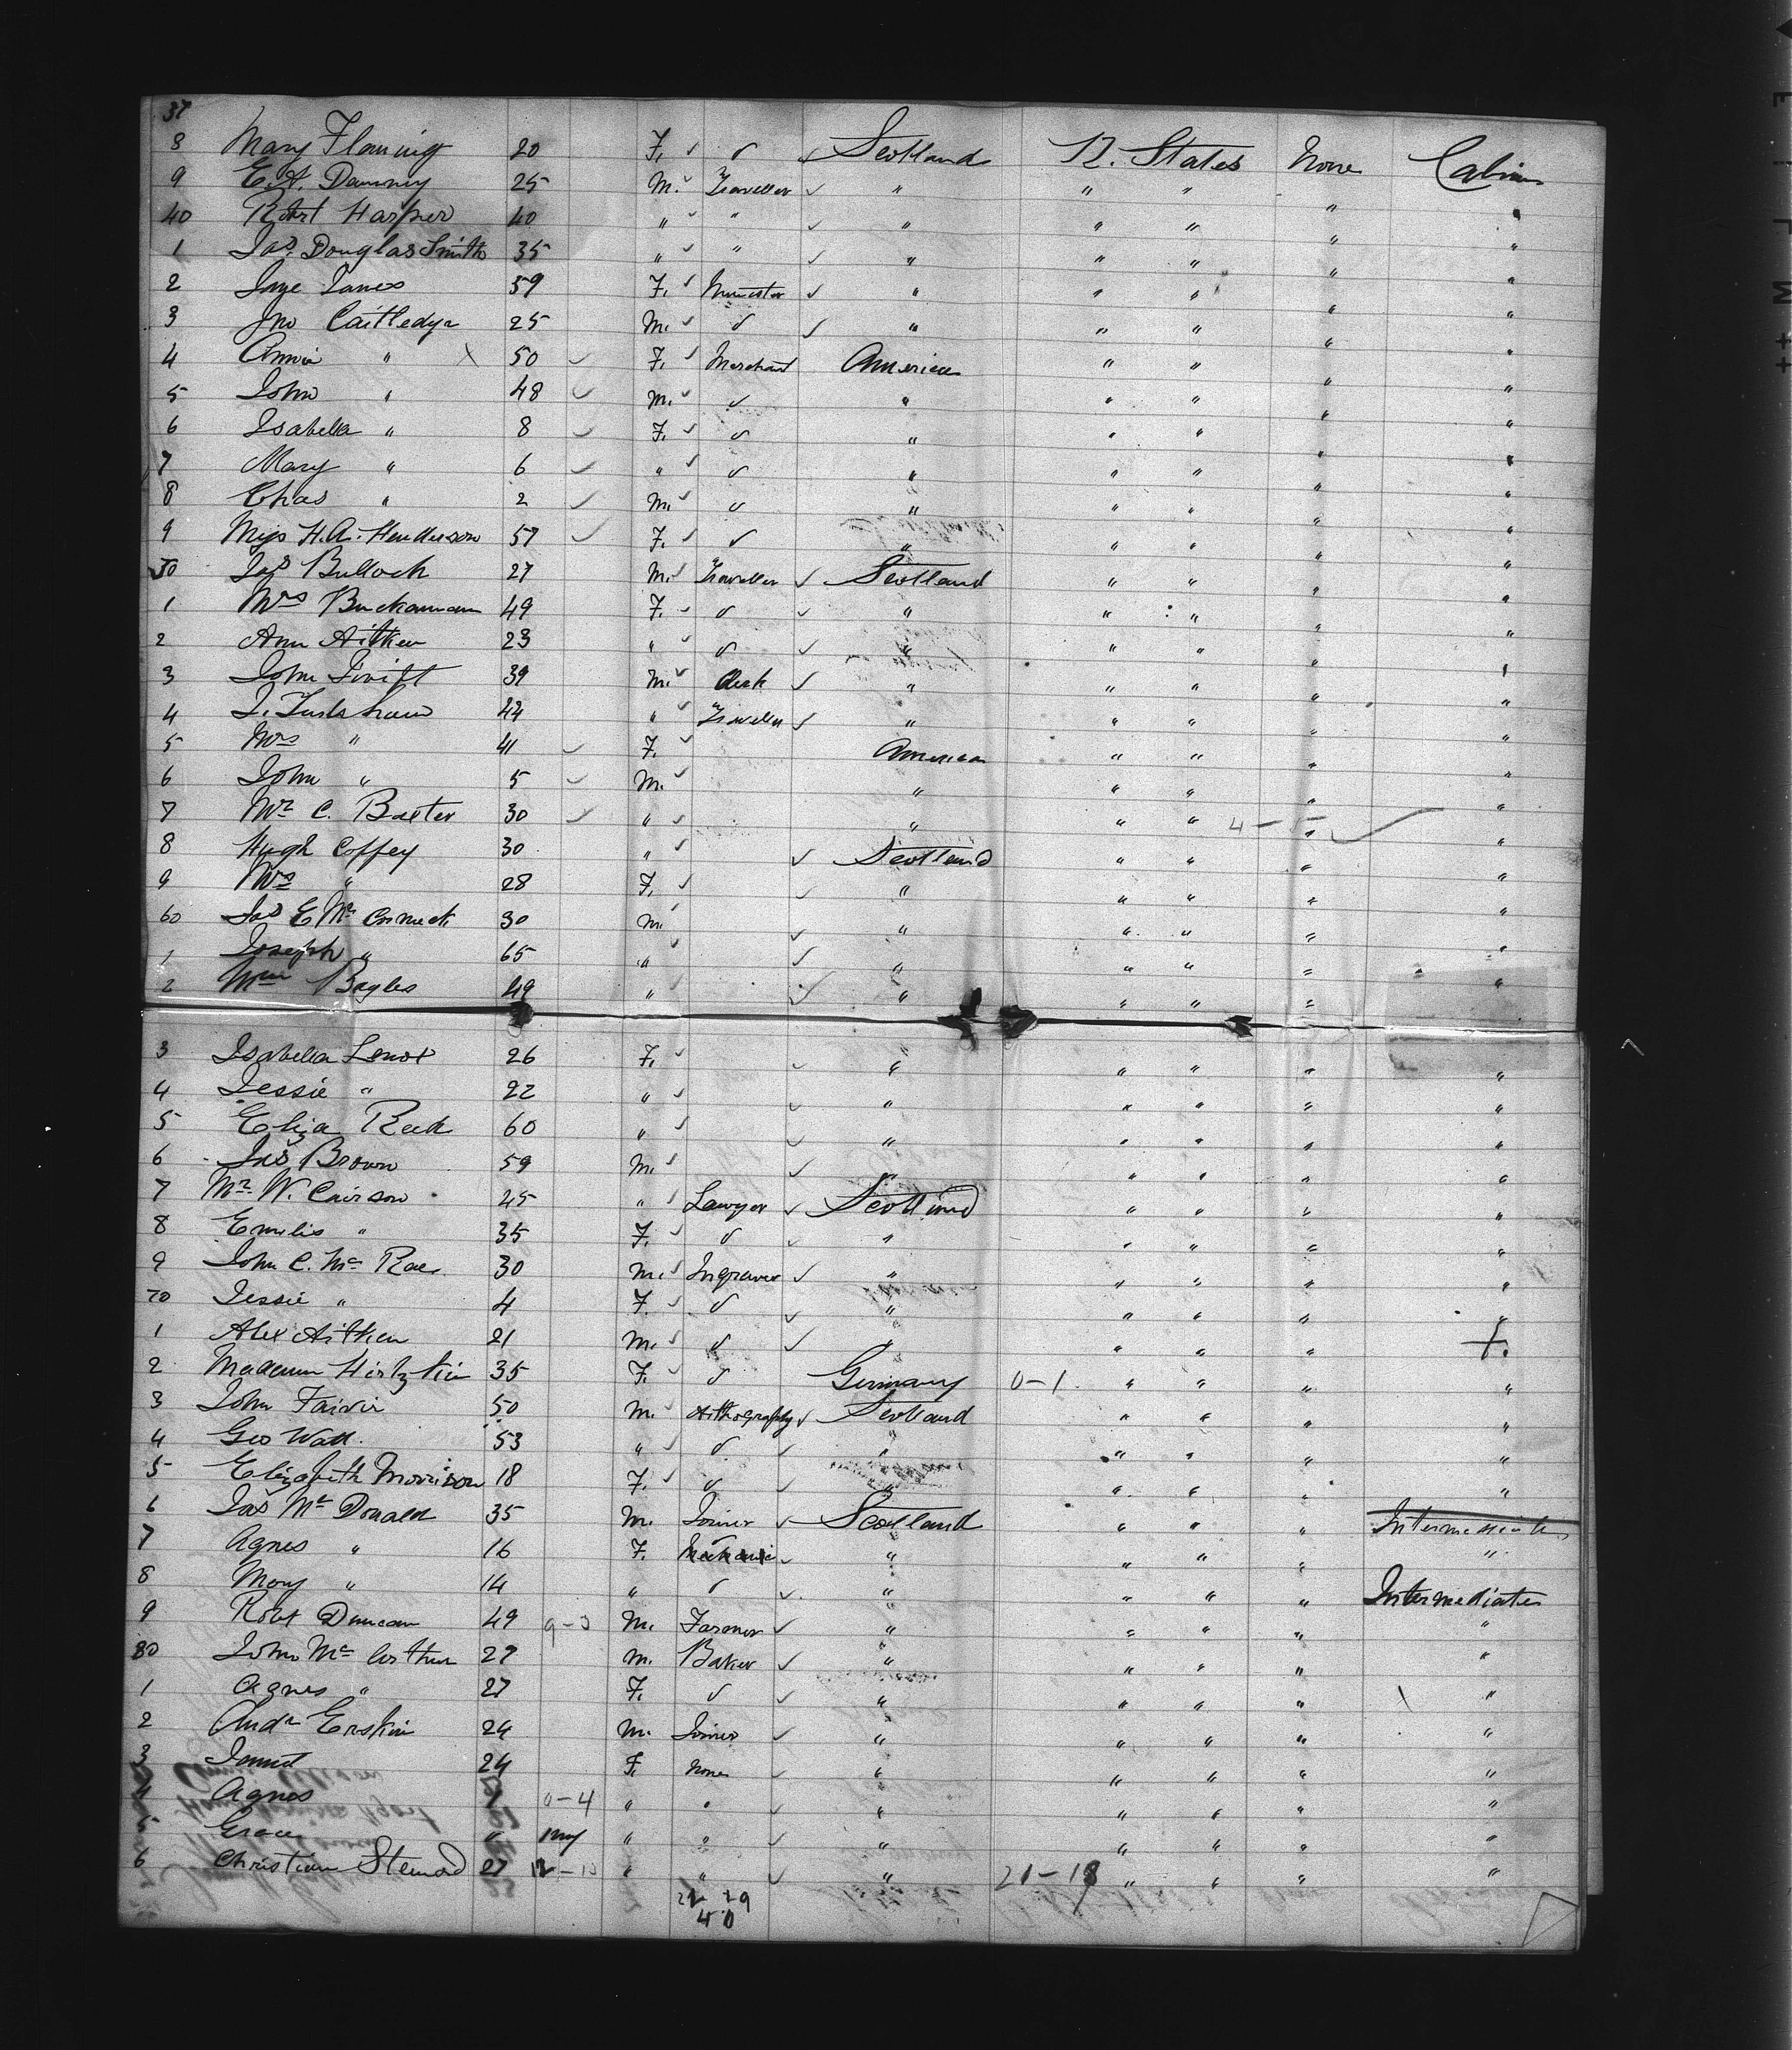 37
8 Mary Flaming 20 F. " Scotland U. States None Cabin
9 E. A. Downey 25 M. Traveller " " " " "
40 Robt Harper 40 " " " " " " "
1 Jas. Douglas Smith 35 " " " " " " "
2 Janes 59 F. Minister " " " " "
3 Jno 25 M. " " " " " "
4 Annie " 50 F. Merchant America " " " "
5 John " 48 M. " " " " " "
6 Isabella " 8 F. " " " " " "
7 Mary " 6 " " " " " " "
8 Chas " 2 M. " " " " " "
9 Miss H. A. Henderson 57 F. " " " " " "
50 Jas Bulloch 27 M. Traveller Scotland " " " "
1 Mrs Buckannan 49 F. " " " " " "
2 Ann Aitken 23 " " " " " " "
3 John Swift 39 M. Clerk " " " " "
4 J. 44 " Traveller " " " " "
5 Mrs " 41 F. American " " " "
6 John " 5 M. " " " " "
7 Mr C. Baxter 30 " " " " 4 - 1 " "
8 Hugh Coffey 30 " Scotland " " " "
9 Mrs " 28 F. " " " " "
60 Jas E Mc Cormick 30 M. " " " " "
1 Joseph " 65 " " " " " "
2 Wm Bagles 49 " " " " " "
3 Isabella Lenox 26 F. " " " " "
4 Jessie " 22 " " " " " "
5 Eliza Reek 60 " " " " " "
6 Jas Brown 59 M. " " " " "
7 Mr. W. Cairson 45 " Lawyer Scotland " " " "
8 Emilie " 35 F. " " " " " "
9 John C. Mc Rae 30 M. Ingraver " " " " "
70 Jessie " 4 F. " " " " " "
1 Alex Aitken 21 M. " " " " "
2 Madamn 35 F. " Germany 0-1 " " " "
3 John Fairir 50 M. Lithography Scotland " " " "
4 Geo Watt 53 " " " " " " "
5 Elizabeth Morrison 18 F. " " " " " "
6 Jas Mc Donald 35 M. Joiner Scotland " " " Intermediate
7 Agnes " 16 F. Mechanic " " " " "
8 Mary " 14 " " " " " " Intermediate
9 Robt Duncan 49 M. Farmer " " " " "
80 John Mc Arthur 27 M. Baker " " " " "
1 Agnes " 27 F. " " " " " "
2 Andr Erskin 24 M. Joiner " " " " "
3 Jannet 24 F. None " " " " "
4 Agnes 1 0-4 " " " " " " "
5 Grace " " " " " " " "
6 Christian Steward 27 " " " 21-18 " " " "
40